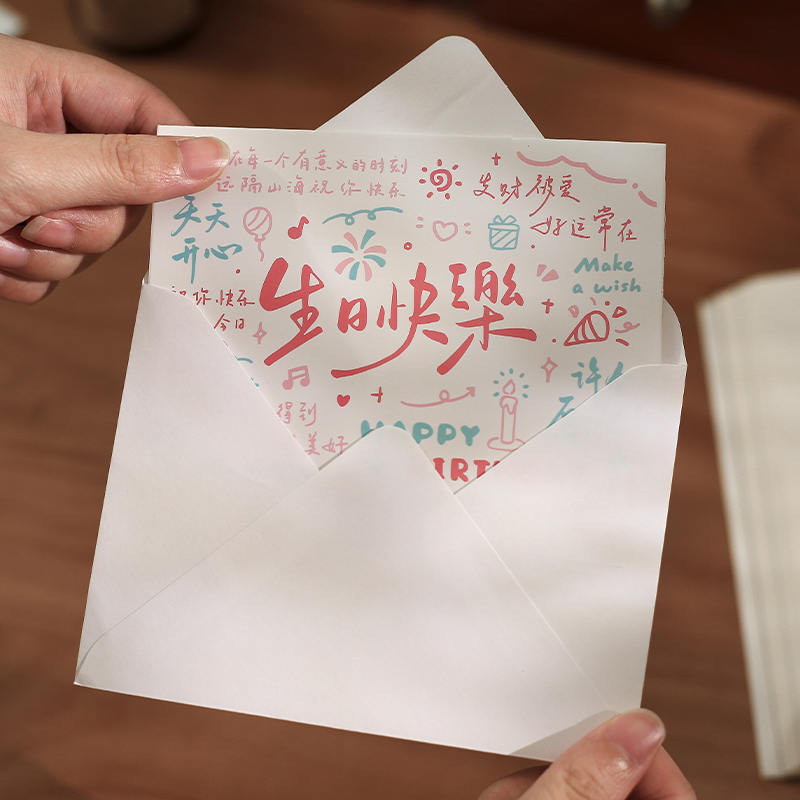 在每一个有意义的时刻
远隔山海祝你快乐
发财被爱
好运常在
天天
开心
Make
a wish
生日快樂
祝你快乐
今日
许
得到
美好
HAPPY
BIRT